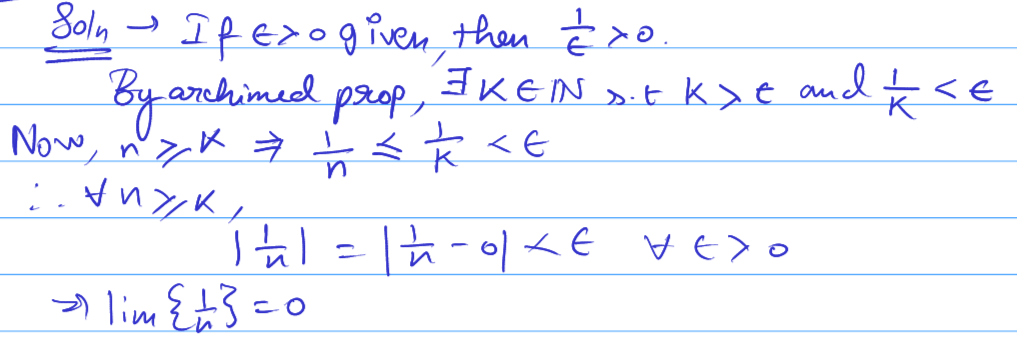 Soln → If ε>0 given, then 1/ε >0.
By archimed prop, ∃ K∈ℕ s.t K>ε and 1/K <ε
Now, n≥K ⇒ 1/n ≤ 1/K <ε
∴ ∀ n≥K,
|1/n| = |1/n - 0| <ε ∀ ε>0
⇒ lim{1/n}=0